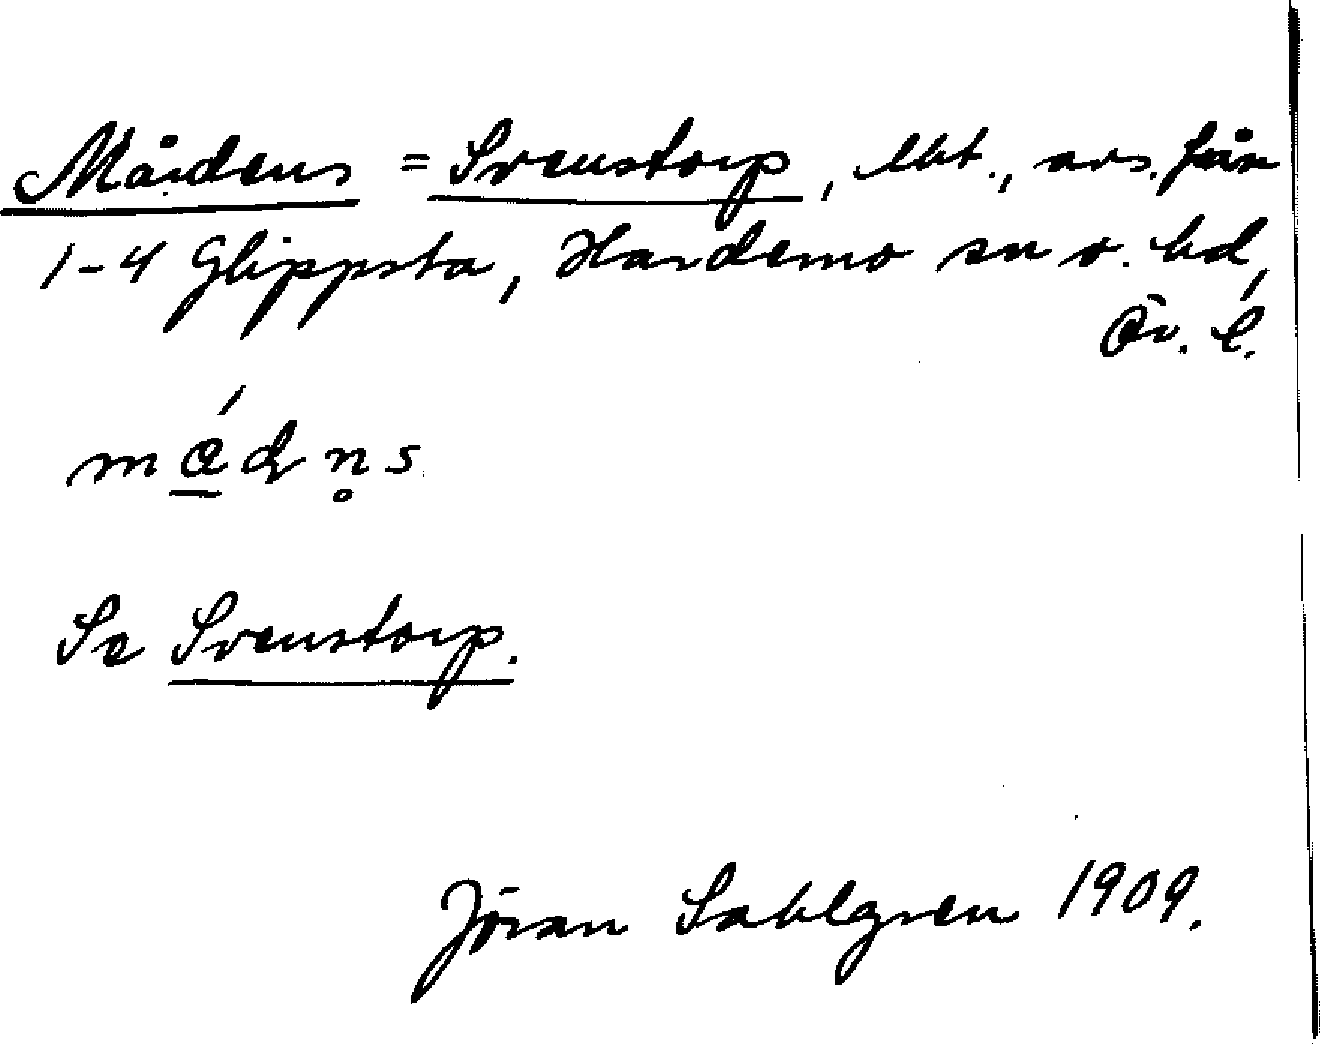 Mårdens = Svenstorp, lht., avs. från
1-4 Glippsta, Hardemo sn o. hd,
Ör. l.
Se Svenstorp.
Jöran Sahlgren 1909.